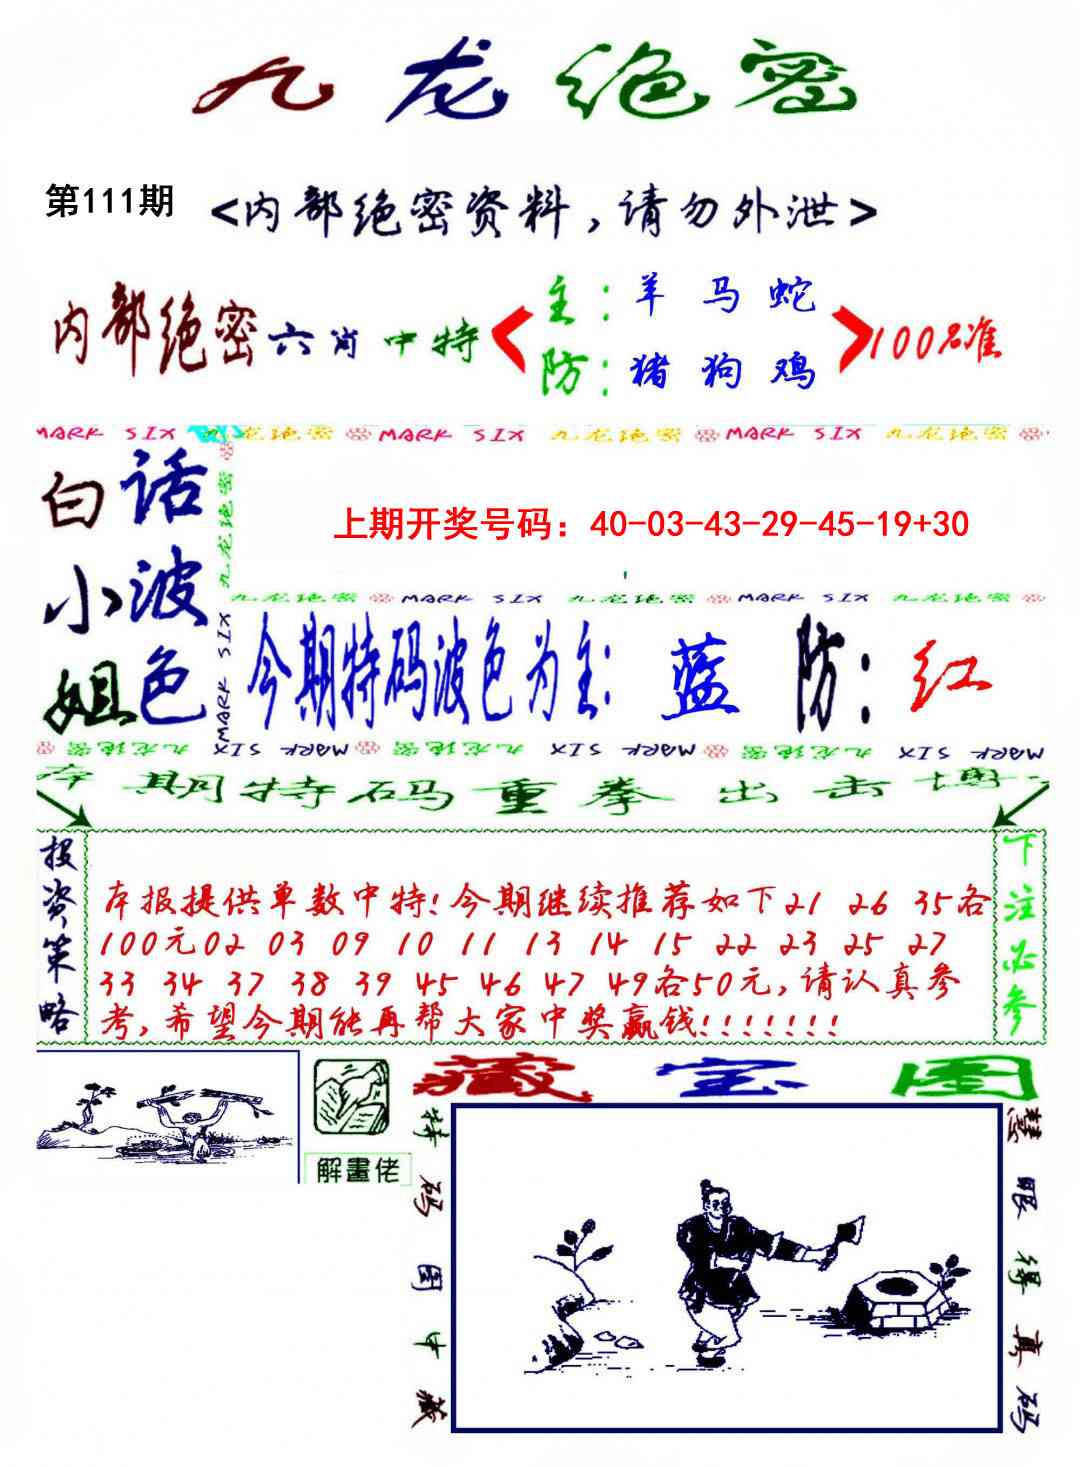 九龙绝密
第111期 <内部绝密资料,请勿外泄>
内部绝密六肖中特
主:羊马蛇
防:猪狗鸡
100%准
MARK SIX 九龙绝密 MARK SIX 九龙绝密 MARK SIX 九龙绝密
白小姐
话波色
九龙绝密
MARK SIX
上期开奖号码：40-03-43-29-45-19+30
九龙绝密 MARK SIX 九龙绝密 MARK SIX 九龙绝密
今期特码波色为主:蓝 防:红
九龙绝密 MARK SIX 九龙绝密 MARK SIX 九龙绝密 MARK SIX
本期特码重拳出击博
投资策略
本报提供单数中特!今期继续推荐如下21 26 35各
100元02 03 09 10 11 13 14 15 22 23 25 27
33 34 37 38 39 45 46 47 49各50元,请认真参
考,希望今期能再帮大家中奖赢钱!!!!!!!
下注必参
解畫佬
藏宝图
特码图中藏
慧眼得真码